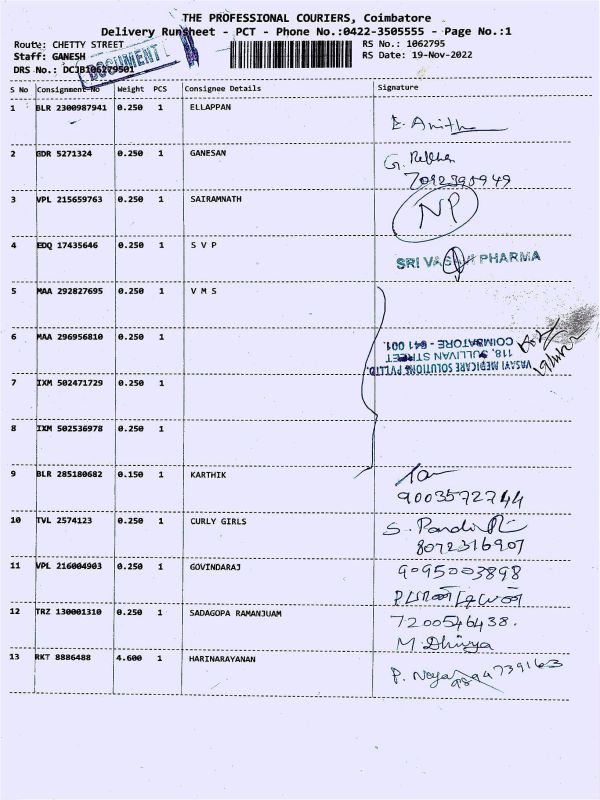 THE PROFESSIONAL COURIERS, Coimbatore
Delivery Runsheet - PCT - Phone No.:0422-3505555 - Page No.:1
Route: CHETTY STREET RS No.: 1062795
Staff: GANESH RS Date: 19-Nov-2022
DRS No.: DCJB106279501
DOCUMENT
S No Consignment No Weight PCS Consignee Details Signature
1 BLR 2300987941 0.250 1 ELLAPPAN
E. Anitha
2 GDR 5271324 0.250 1 GANESAN
G.
7092398949
3 VPL 215659763 0.250 1 SAIRAMNATH NP
4 EDQ 17435646 0.250 1 S V P
SRI PHARMA
5 MAA 292827695 0.250 1 V M S
6 MAA 296956810 0.250 1
VASAVI MEDICARE SOLUTIONS PVT.LTD.
118, SULLIVAN STREET
COIMBATORE - 641 001.
7 IXM 502471729 0.250 1
8 IXM 502536978 0.250 1
9 BLR 285180682 0.150 1 KARTHIK
9003572744
10 TVL 2574123 0.250 1 CURLY GIRLS
S.
8072316907
11 VPL 216004903 0.250 1 GOVINDARAJ 9095003898
12 TRZ 130001310 0.250 1 SADAGOPA RAMANJUAM 7200546438.
M. Dhivya
13 RKT 8886488 4.600 1 HARINARAYANAN
P. 9894739163